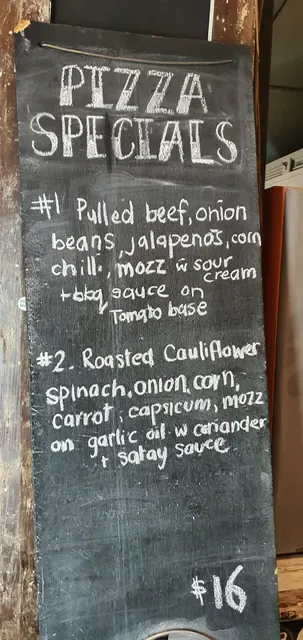 PIZZA
SPECIALS
#1 Pulled beef, onion
beans, jalapenos, corn
chilli, mozz w sour
cream
+ bbq sauce on
Tomato base
#2. Roasted Cauliflower
spinach, onion, corn,
carrot, capsicum, mozz
on garlic oil w coriander
+ satay sauce
$16